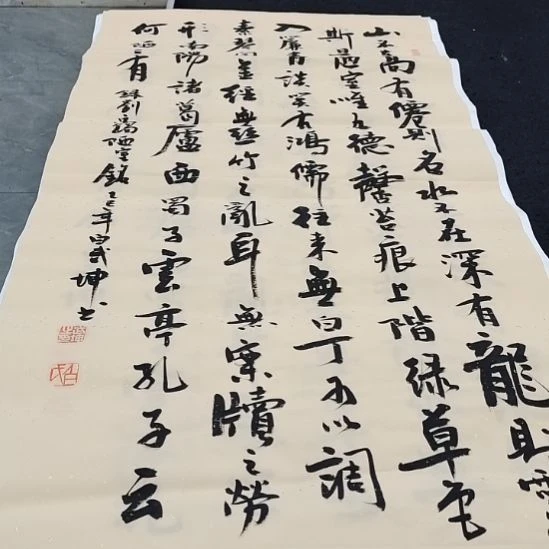 山不高有僊則名水不在深有龍則靈
斯陋室唯吾德馨苔痕上階绿草色
入簾青談笑有鴻儒往来無白丁可以調
素琴金經無絲竹之亂耳無案牘之勞
形南陽諸葛廬西蜀子雲亭孔子云
何陋之有 錄劉禹錫陋室銘 乙巳年白武坤书